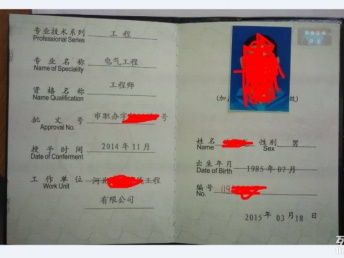 专业技术系列 工 程
Professional Series
专 业 名 称 电气工程
Name of Speciality
资 格 名 称 工程师
Name Qualification
批 文 号 市职办字 号
Approval No.
授 予 时 间 2014 年 11 月
Date of Conferment
工 作 单 位 河北 工程
Work Unit
有限公司
姓 名 性 别 男
Name Sex
出 生 年 月 1985 年 02 月
Date of Birth
编 号
No.
2015 年 03 月 18 日